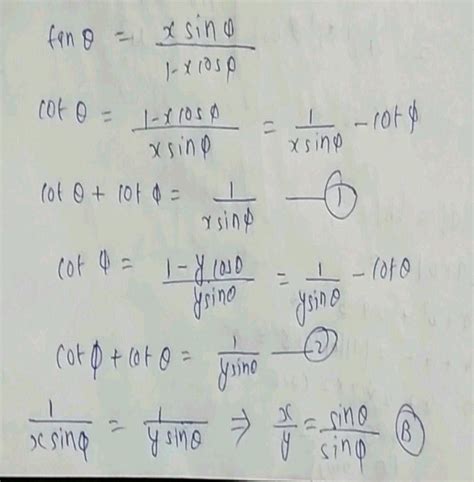 tan θ = x sinφ / 1-x cosφ
cot θ = 1-x cosφ / x sinφ = 1 / x sinφ - cot φ
cot θ + cot φ = 1 / x sinφ — ①
cot φ = 1-y cosθ / y sinθ = 1 / y sinθ - cot θ
cot φ + cot θ = 1 / y sinθ — ②
1 / x sinφ = 1 / y sinθ ⇒ x / y = sinθ / sinφ Ⓑ